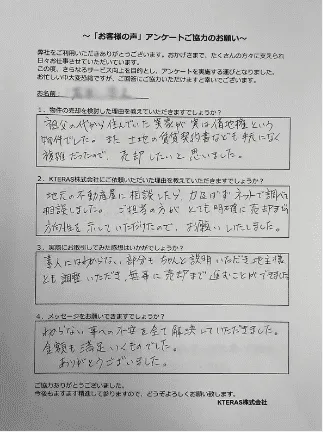 ～「お客様の声」アンケートご協力のお願い～
弊社をご利用いただきありがとうございます。おかげさまで、たくさんの方々に支えられ
日々お仕事させていただいています。
この度、さらなるサービス向上を目的とし、アンケートを実施する運びとなりました。
お忙しい中大変恐縮ですが、ご回答にご協力いただけますと幸いでございます。
お名前：
１、物件の売却を検討した理由を教えていただきますでしょうか？
祖父の代から住んでいた実家が実は借地権という
物件でした。また土地の賃貸契約書なども手元になく
複雑だったので、売却したいと思いました。
２、KTERAS株式会社にご依頼いただいた理由を教えていただきますでしょうか？
地元の不動産屋に相談したら、力及ばずネットで調べ
相談しました。ご担当の方がとても明確に売却まで
方向性を示していただけたので、お願いいたしました。
３、実際にお取引してみた感想はいかがでしょうか？
素人にはわからない部分もちゃんと説明いただき地主様
とも調整いただき、無事に売却まで進むことができました
４、メッセージをお願いできますでしょうか？
わからない事への不安を全て解決していただきました。
金額も満足いくものでした。
ありがとうございました。
ご協力ありがとうございました。
今後もますます精進して参りますので、どうぞよろしくお願い致します。
KTERAS株式会社